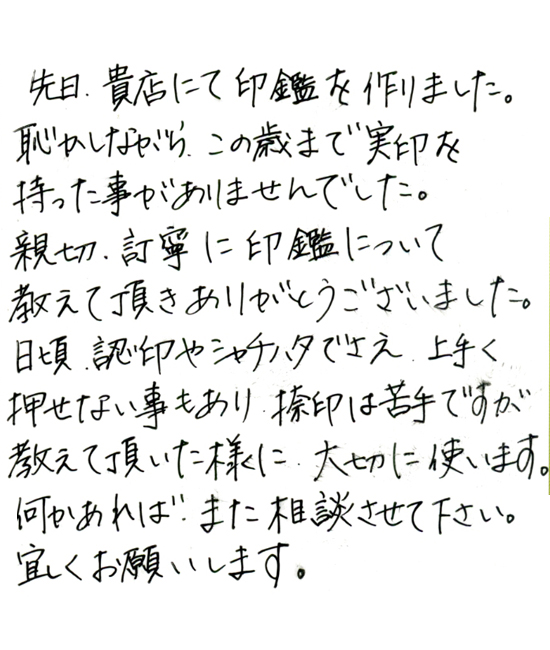 先日、貴店にて印鑑を作りました。
恥かしながら、この歳まで実印を
持った事がありませんでした。
親切、訂寧に印鑑について
教えて頂きありがとうございました。
日頃、認印やシャチハタでさえ、上手く
押せない事もあり、捺印は苦手ですが
教えて頂いた様に、大切に使います。
何かあれば、また相談させて下さい。
宜しくお願いします。